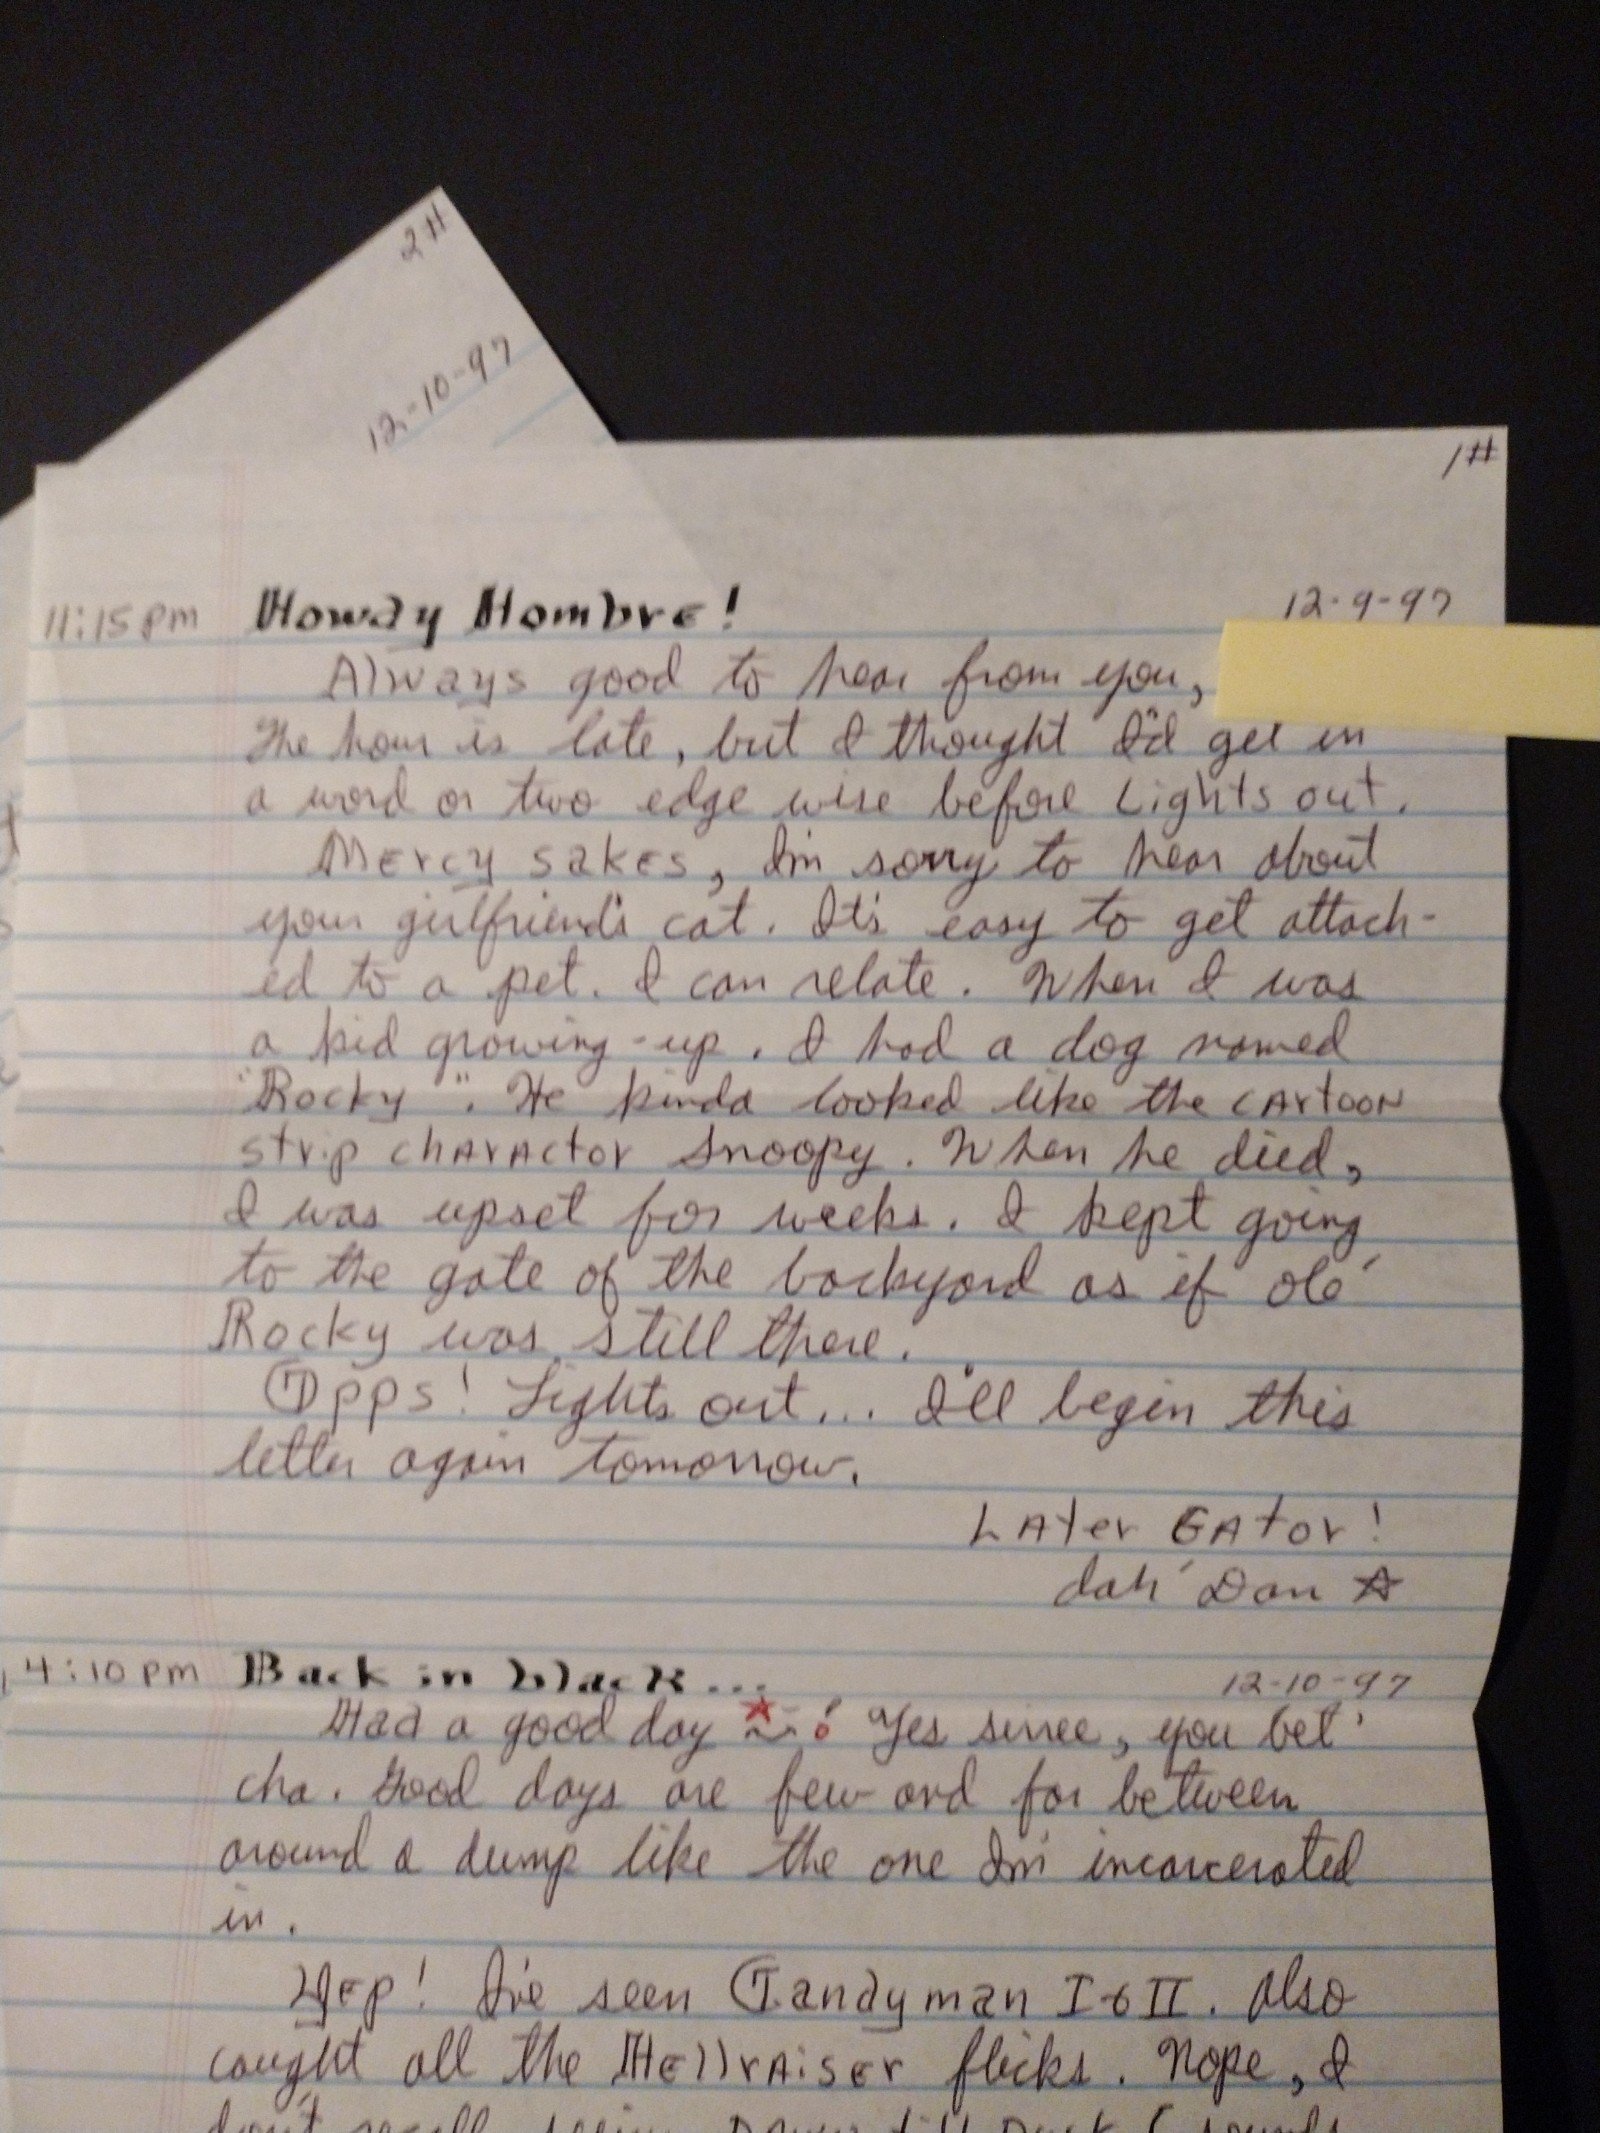 2#
12-10-97
1#
11:15 pm Howdy Hombre! 12-9-97
Always good to hear from you,
The hour is late, but I thought I'd get in
a word or two edge wise before Lights out.
Mercy sakes, I'm sorry to hear about
your girlfriend's cat. It's easy to get attach-
ed to a pet. I can relate. When I was
a kid growing-up. I had a dog named
"Rocky". He kinda looked like the cartoon
strip charactor Snoopy. When he died,
I was upset for weeks. I kept going
to the gate of the backyard as if ole'
Rocky was still there.
Opps! Lights out... I'll begin this
letter again tomorrow.
Later Gator!
dah' Dan ☆
4:10 pm Back in black... 12-10-97
Had a good day ! Yes siree, you bet'
cha. Good days are few and far between
around a dump like the one I'm incarcerated
in.
Yep! I've seen Candyman I & II. Also
caught all the Hellraiser flicks. Nope, I
don't recall seein' Dawn till Dusk (sounds